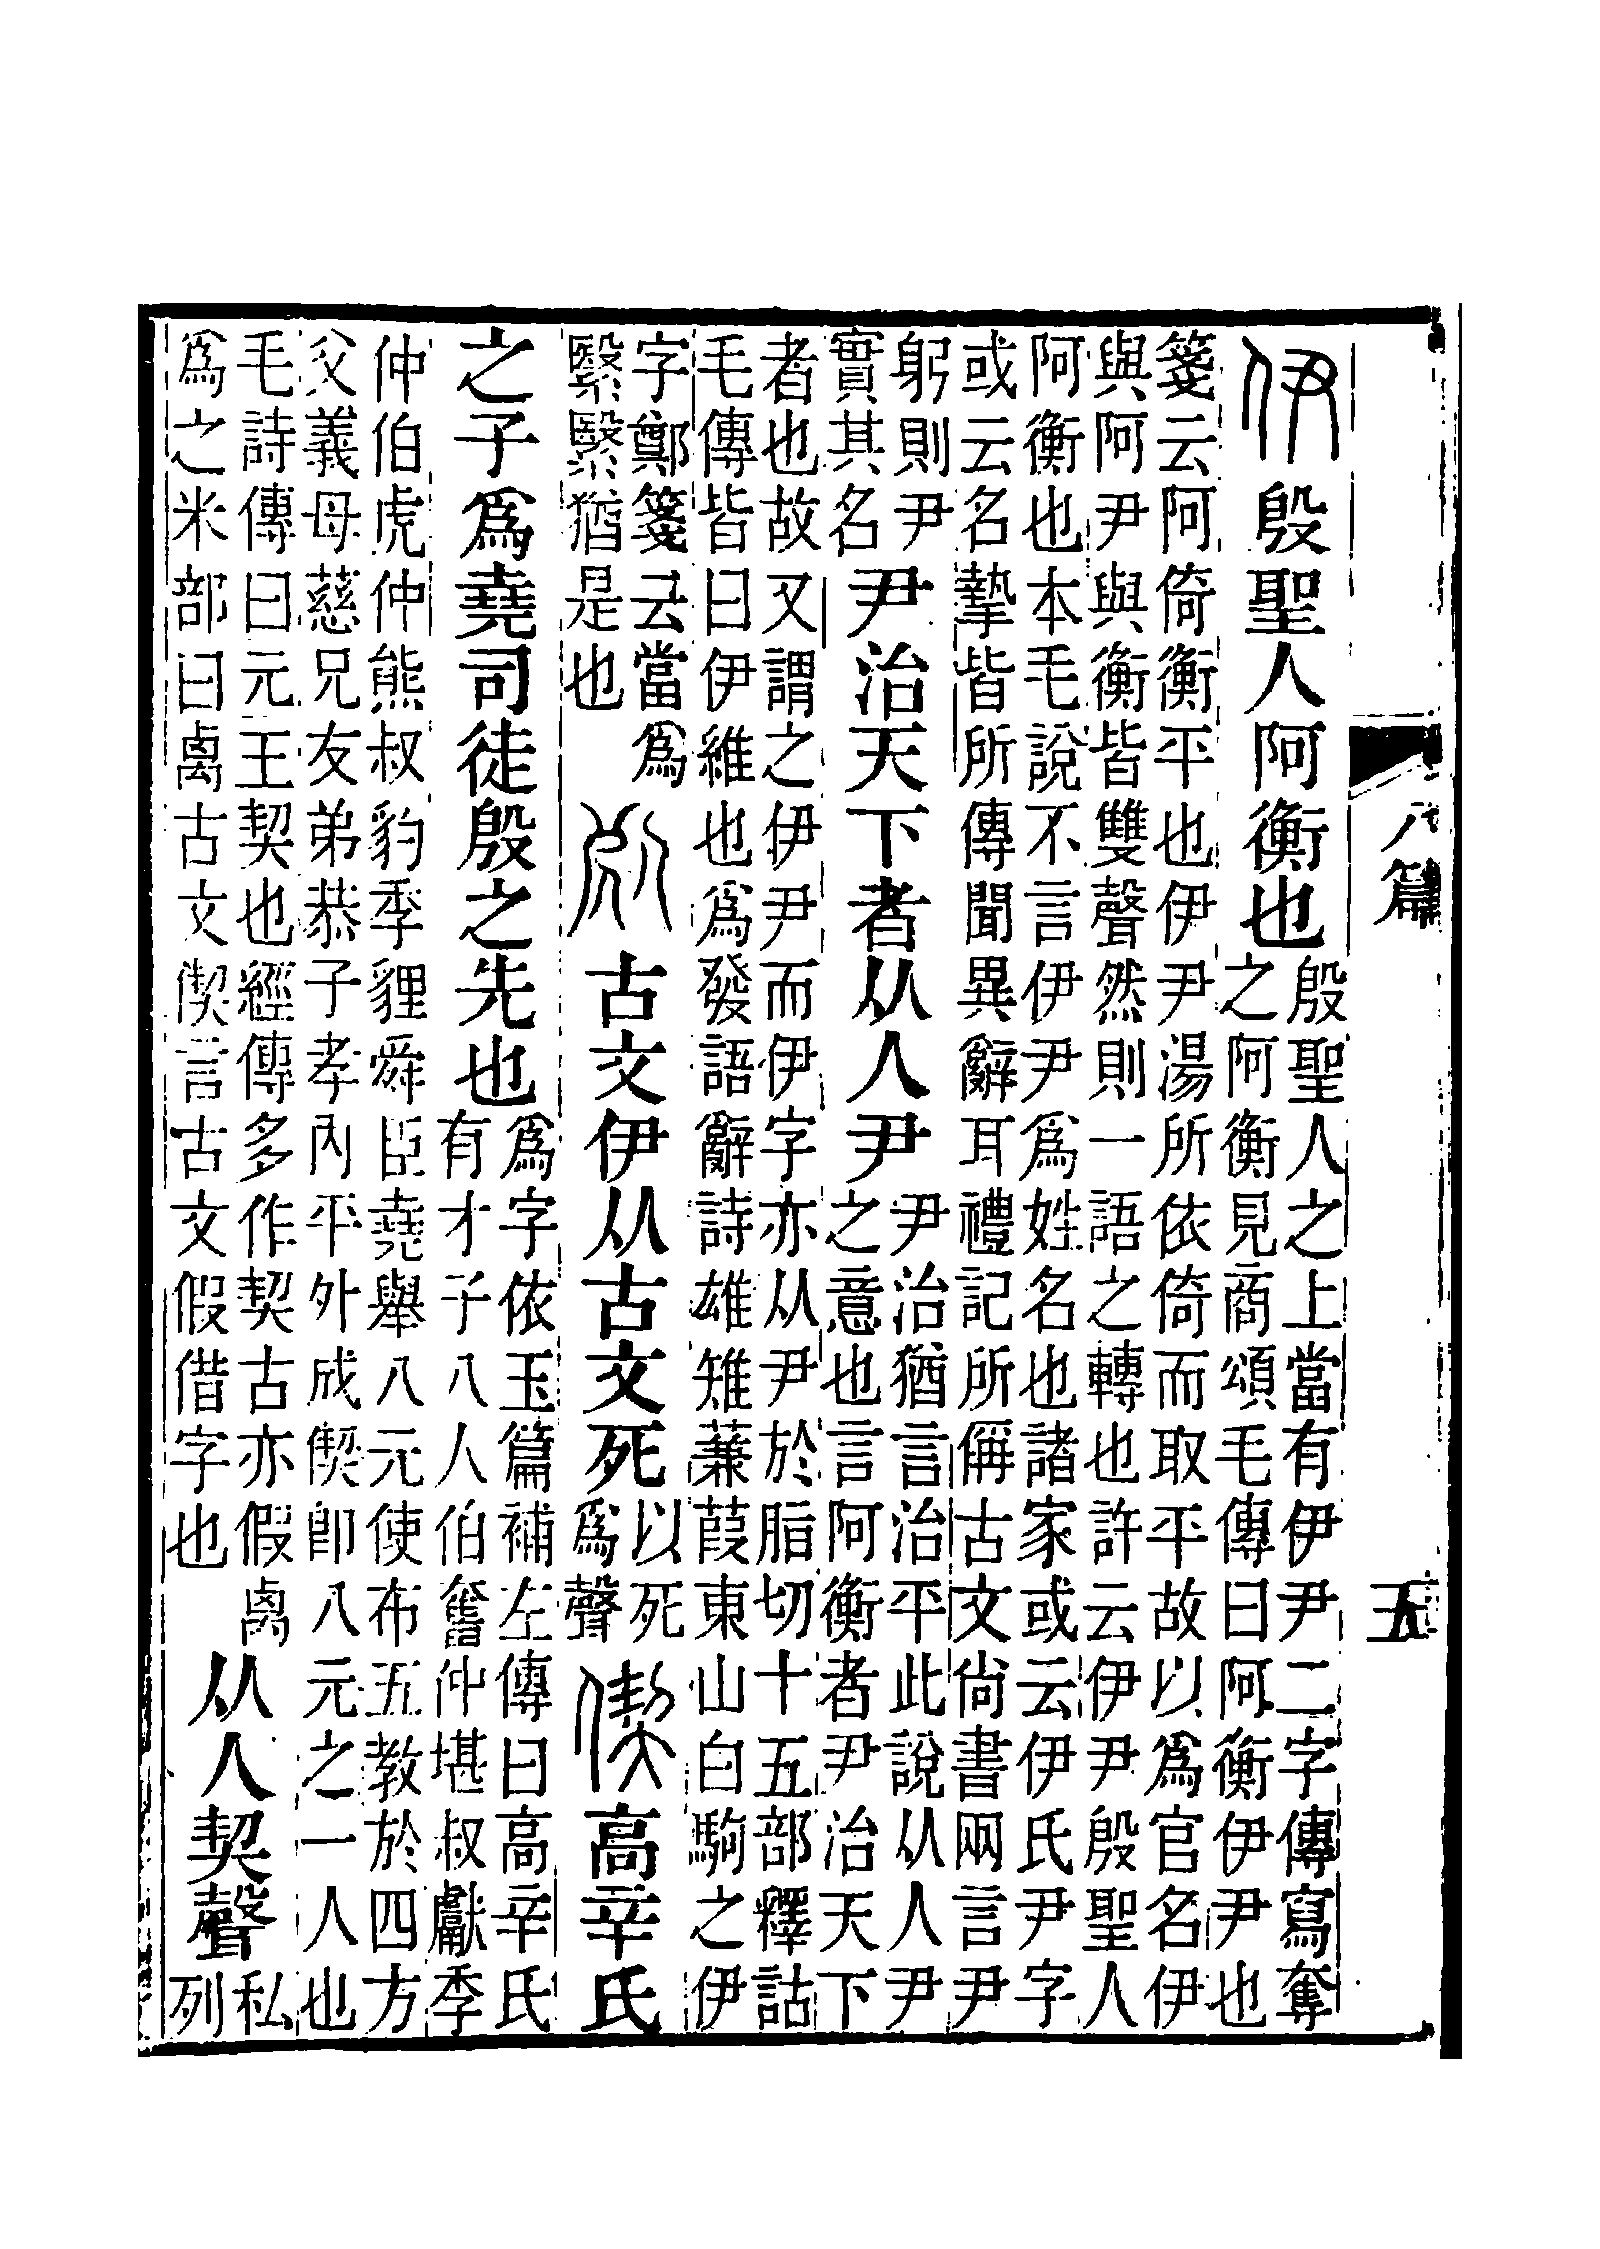 八篇
五
伊殷聖人阿衡也殷聖人之上當有伊尹二字傳寫奪之阿衡見商頌毛傳曰阿衡伊尹也
箋云阿倚衡平也伊尹湯所依倚而取平故以爲官名伊
與阿尹與衡皆雙聲然則一語之轉也許云伊尹殷聖人
阿衡也本毛說不言伊尹爲姓名也諸家或云伊氏尹字
或云名摯皆所傳聞異辭耳禮記所偁古文尙書兩言尹
躬則尹實其名尹治天下者从人尹尹治猶言治平此說从人尹之意也言阿衡者尹治天下
者也故又謂之伊尹而伊字亦从尹於脂切十五部釋詁
毛傳皆曰伊維也爲發語辭詩雄雉蒹葭東山白駒之伊
字鄭箋云當爲繄繄猶是也𠈌古文伊从古文死以死爲聲偰高辛氏
之子爲堯司徒殷之先也爲字依玉篇補左傳曰高辛氏有才子八人伯奮仲堪叔獻季
仲伯虎仲熊叔豹季貍舜臣堯舉八元使布五教於四方
父義母慈兄友弟恭子孝內平外成偰卽八元之一人也
毛詩傳曰元王契也經傳多作契古亦假卨
爲之米部曰卨古文偰言古文假借字也从人契聲私列